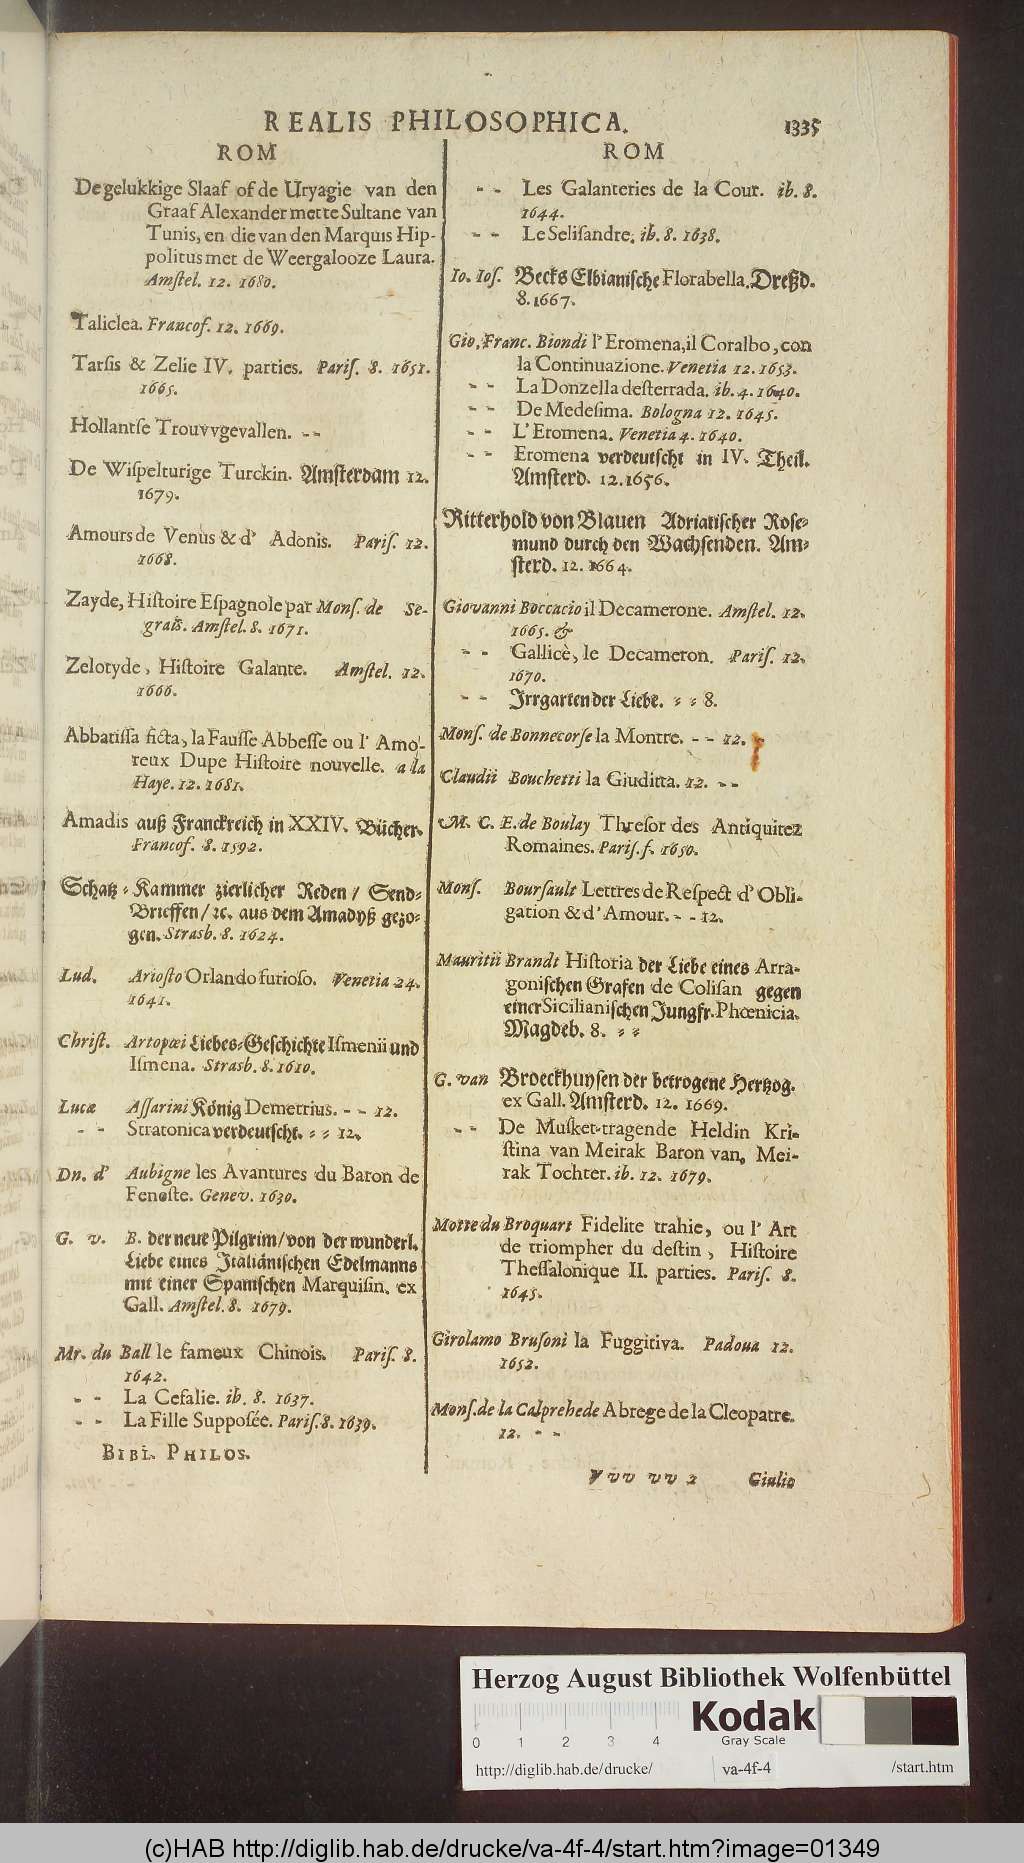 REALIS PHILOSOPHICA. 1335
ROM
De gelukkige Slaaf of de Uryagie van den
Graaf Alexander mette Sultane van
Tunis, en die van den Marquis Hip-
politus met de Weergalooze Laura.
Amſtel. 12. 1680.
Taliclea. Francof. 12. 1669.
Tarſis & Zelie IV. parties. Pariſ. 8. 1651.
1665.
Hollantſe Trouvvgevallen. - -
De Wiſpelturige Turckin. Amſterdam 12.
1679.
Amours de Venus & d' Adonis. Pariſ. 12.
1668.
Zayde, Hiſtoire Eſpagnole par Monſ. de Se-
grais. Amſtel. 8. 1671.
Zelotyde, Hiſtoire Galante. Amſtel. 12.
1666.
Abbatiſſa ficta, la Fauſſe Abbeſſe ou l' Amo-
reux Dupe Hiſtoire nouvelle. a la
Haye. 12. 1681.
Amadis auß Franckreich in XXIV. Bücher.
Francof. 8. 1592.
Schatz-Kammer zierlicher Reden / Send-
Brieffen / ꝛc. aus dem Amadyß gezo-
gen. Strasb. 8. 1624.
Lud. Arioſto Orlando furioſo. Venetia 24.
1641.
Chriſt. Artopœi Liebes-Geſchichte Iſmenii und
Iſmena. Strasb. 8. 1610.
Lucæ Aſſarini König Demetrius. - - 12.
- - Stratonica verdeutſcht. - - 12.
Dn. d' Aubigne les Avantures du Baron de
Feneſte. Genev. 1630.
G. v. B. der neue Pilgrim / von der wunderl.
Liebe eines Italiäniſchen Edelmanns
mit einer Spaniſchen Marquiſin. ex
Gall. Amſtel. 8. 1679.
Mr. du Ball le fameux Chinois. Pariſ. 8.
1642.
- - La Cefalie. ib. 8. 1637.
- - La Fille Suppoſée. Pariſ. 8. 1639.
BIBL. PHILOS.
ROM
- - Les Galanteries de la Cour. ib. 8.
1644.
- - Le Seliſandre. ib. 8. 1638.
Io. Ioſ. Becks Elbianiſche Florabella. Dreßd.
8. 1667.
Gio. Franc. Biondi l' Eromena, il Coralbo, con
la Continuazione. Venetia 12. 1653.
- - La Donzella deſterrada. ib. 4. 1640.
- - De Medeſima. Bologna 12. 1645.
- - L' Eromena. Venetia 4. 1640.
- - Eromena verdeutſcht in IV. Theil.
Amſterd. 12. 1656.
Ritterhold von Blauen Adriatiſcher Roſe-
mund durch den Wachſenden. Am-
ſterd. 12. 1664.
Giovanni Boccacio il Decamerone. Amſtel. 12.
1665. &
- - Gallicè, le Decameron. Pariſ. 12.
1670.
- - Irrgarten der Liebe. - - 8.
Monſ. de Bonnecorſe la Montre. - - 12.
Claudii Bouchetti la Giuditta. 12. - -
M. C. E. de Boulay Threſor des Antiquitez
Romaines. Pariſ. f. 1650.
Monſ. Bourſault Lettres de Reſpect d' Obli-
gation & d' Amour. - - 12.
Mauritii Brandt Hiſtoria der Liebe eines Arra-
goniſchen Grafen de Coliſan gegen
einer Sicilianiſchen Jungfr. Phœnicia.
Magdeb. 8. - -
G. van Broeckhuyſen der betrogene Hertzog.
ex Gall. Amſterd. 12. 1669.
- - De Musket-tragende Heldin Kri-
ſtina van Meirak Baron van. Mei-
rak Tochter. ib. 12. 1679.
Motte du Broquart Fidelite trahie, ou l' Art
de triompher du deſtin, Hiſtoire
Theſſalonique II. parties. Pariſ. 8.
1645.
Girolamo Bruſoni la Fuggitiva. Padoua 12.
1652.
Monſ. de la Calprehede Abrege de la Cleopatre.
12. - -
Vvv vv 2 Giulio
Herzog August Bibliothek Wolfenbüttel
0 1 2 3 4
Kodak
Gray Scale
http://diglib.hab.de/drucke/ va-4f-4 /start.htm
(c)HAB http://diglib.hab.de/drucke/va-4f-4/start.htm?image=01349